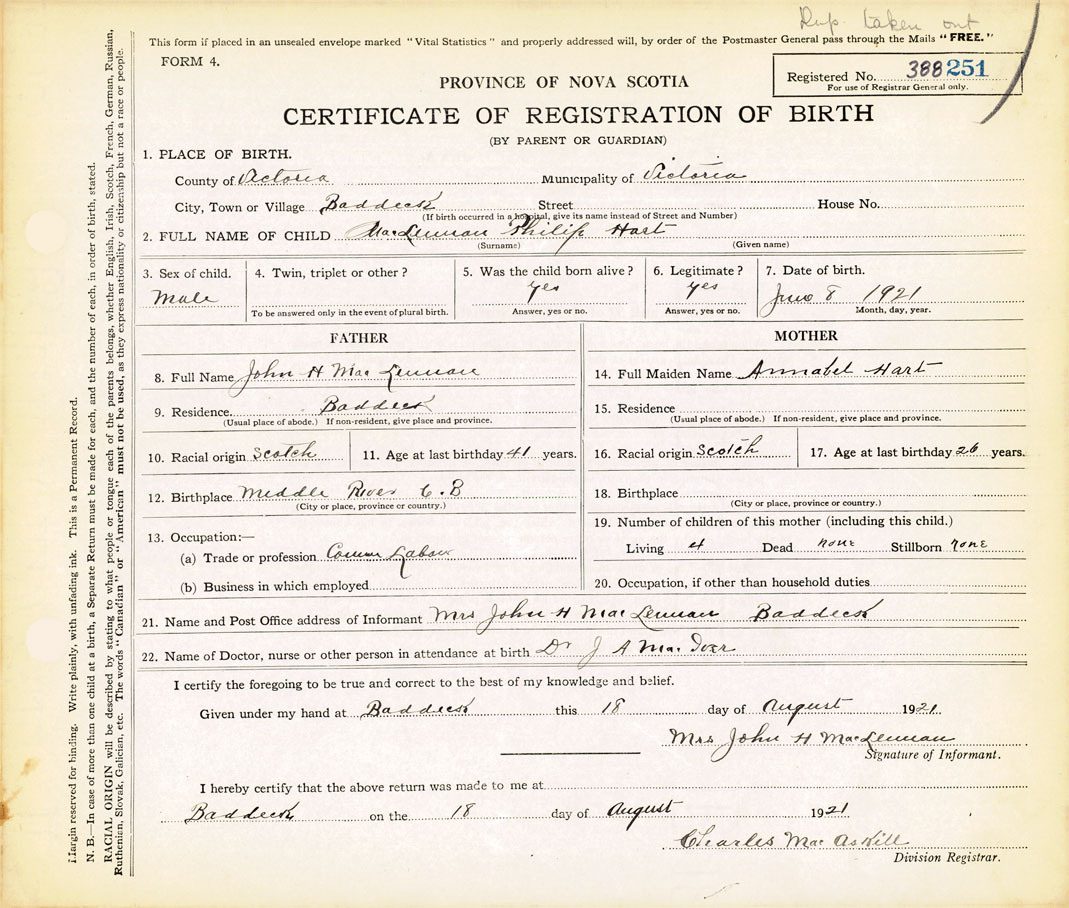 Dup. taken out
This form if placed in an unsealed envelope marked "Vital Statistics" and properly addressed will, by order of the Postmaster General pass through the Mails "FREE."
FORM 4.
Registered No. 388 251
For use of Registrar General only.
PROVINCE OF NOVA SCOTIA
CERTIFICATE OF REGISTRATION OF BIRTH
(BY PARENT OR GUARDIAN)
1. PLACE OF BIRTH.
County of Victoria Municipality of Victoria
City, Town or Village Baddeck Street House No.
(If birth occurred in a hospital, give its name instead of Street and Number)
2. FULL NAME OF CHILD MacLennan Philip Hart
(Surname) (Given name)
3. Sex of child. 4. Twin, triplet or other? 5. Was the child born alive? 6. Legitimate? 7. Date of birth.
Male yes yes June 8 1921
To be answered only in the event of plural birth. Answer, yes or no. Answer, yes or no. Month, day, year.
FATHER
8. Full Name John H MacLennan
9. Residence Baddeck
(Usual place of abode.) If non-resident, give place and province.
10. Racial origin Scotch 11. Age at last birthday 41 years.
12. Birthplace Middle River C.B
(City or place, province or country.)
13. Occupation:—
(a) Trade or profession Common Labour
(b) Business in which employed
MOTHER
14. Full Maiden Name Annabel Hart
15. Residence
(Usual place of abode.) If non-resident, give place and province.
16. Racial origin Scotch 17. Age at last birthday 26 years.
18. Birthplace
(City or place, province or country.)
19. Number of children of this mother (including this child.)
Living 4 Dead none Stillborn none
20. Occupation, if other than household duties
21. Name and Post Office address of Informant Mrs John H MacLennan Baddeck
22. Name of Doctor, nurse or other person in attendance at birth Dr J A MacIver
I certify the foregoing to be true and correct to the best of my knowledge and belief.
Given under my hand at Baddeck this 18 day of August 1921
Mrs John H MacLennan
Signature of Informant.
I hereby certify that the above return was made to me at
Baddeck on the 18 day of August 1921
Charles MacAskill
Division Registrar.
Margin reserved for binding. Write plainly, with unfading ink. This is a Permanent Record.
N. B.—In case of more than one child at a birth, a Separate Return must be made for each, and the number of each, in order of birth, stated.
RACIAL ORIGIN will be described by stating to what people or tongue each of the parents belongs, whether English, Irish, Scotch, French, German, Russian,
Ruthenian, Slovak, Galician, etc. The words "Canadian" or "American" must not be used, as they express nationality or citizenship but not a race or people.